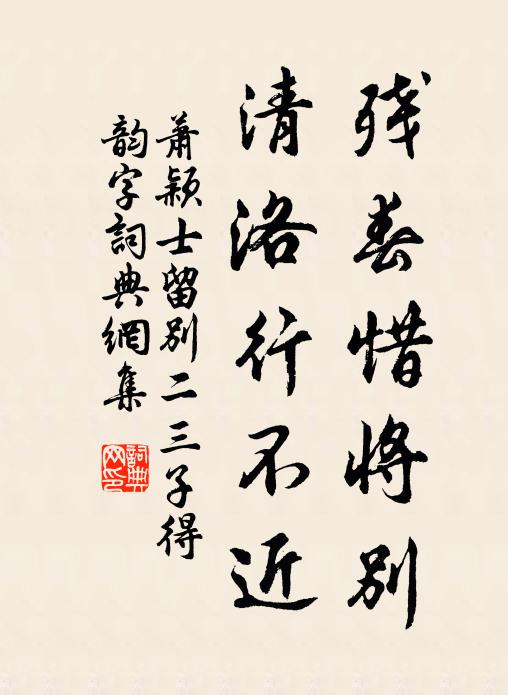 残春惜将别
清洛行不近
蕭颖士留别二三子得
韵字詞典網集
詞典
网印